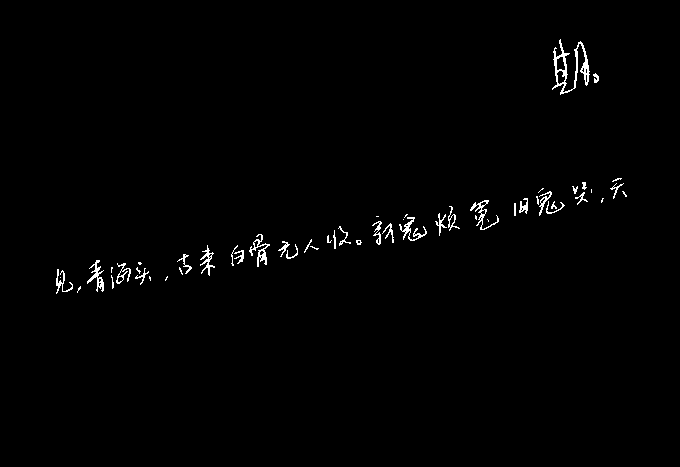 期。
见,青海头,古来白骨无人收。新鬼烦冤旧鬼哭,天